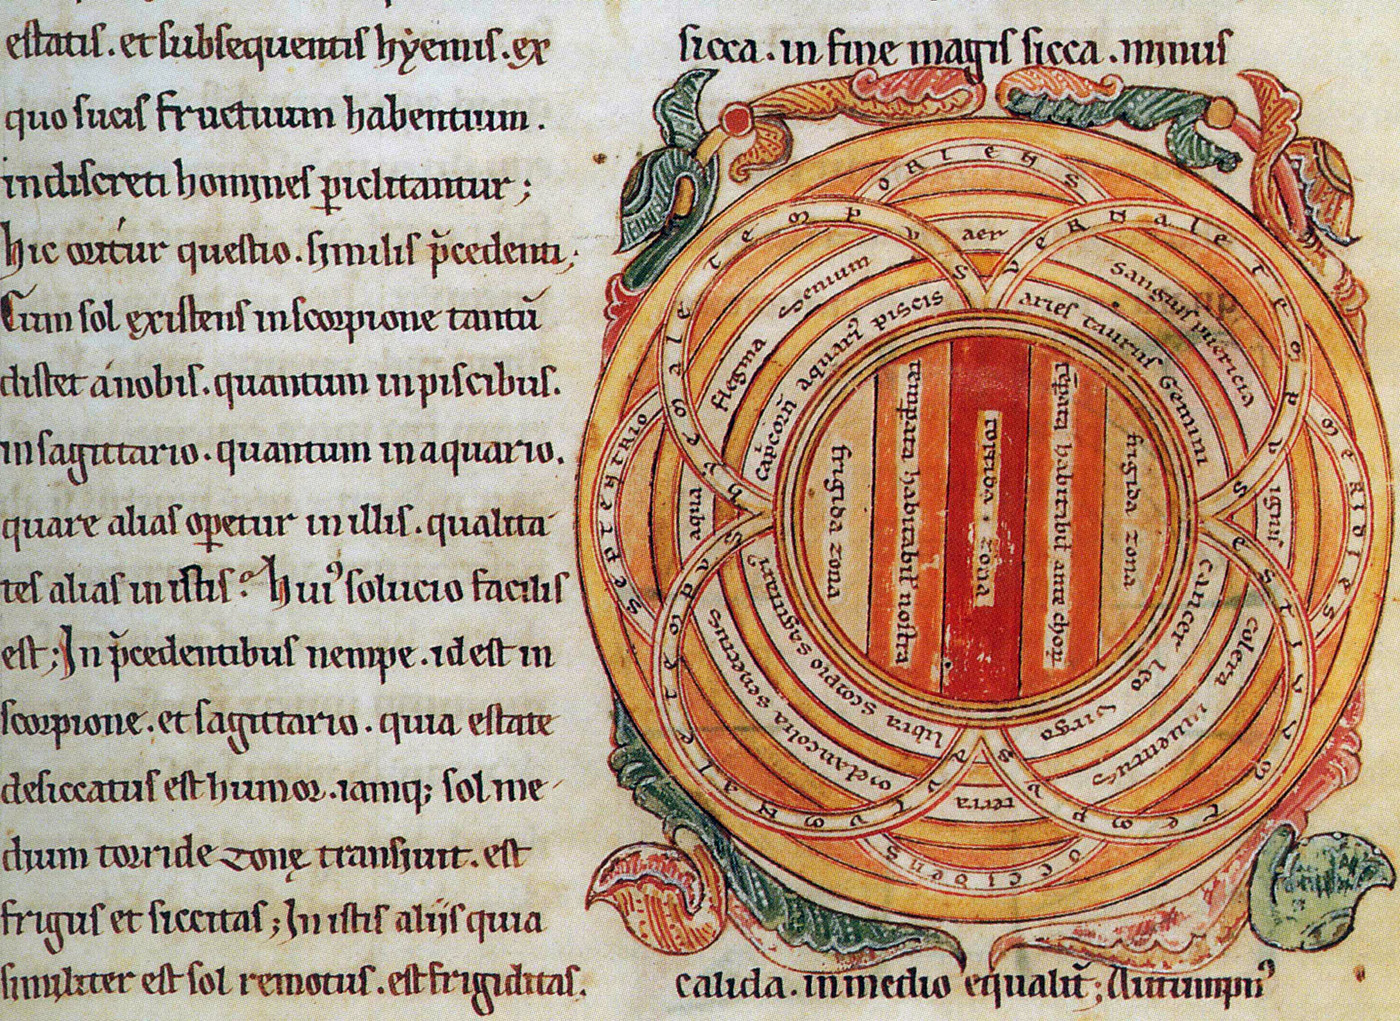 estatis . et subsequentis hẏemis . ex
quo sucis fructuum habentium .
indiscreti homines ꝑiclitantur ;
hic oritur questio . similis p̄cedenti ;
Cum sol existens in scorpione tantū
distet a nobis . quantum in piscibus .
in sagittario . quantum in aquario .
quare alias oꝑetur in illis . qualita-
tes alias in istis . huiꝰ solucio facilis
est ; In p̄cedentibus nempe . id est in
scorpione . et sagittario . quia estate
desiccatus est humor . iamq; sol me-
dium torride zonę transiuit . est
frigus et siccitas ; In istis aliis quia
similiter est sol remotus . est frigiditas .
sicca . in fine magis sicca . minus
oriens
aer
vernale tempus
sanguis puericia
aries taurus Gemini
meridies
ignis
estiuum tempus
colera iuuentus
cancer leo virgo
occidens
terra
autumnale tempus
melancolia senectus
libra scorpio sagittari
septentrio
aqua
hiemale tempus
flegma senium
capcorñ aquariꝰ piscis
frigida zona
temꝑata habitabil' nostra
torrida . zona
frigida zona
calida . in medio equalit̄ ; Autumpnꝰ